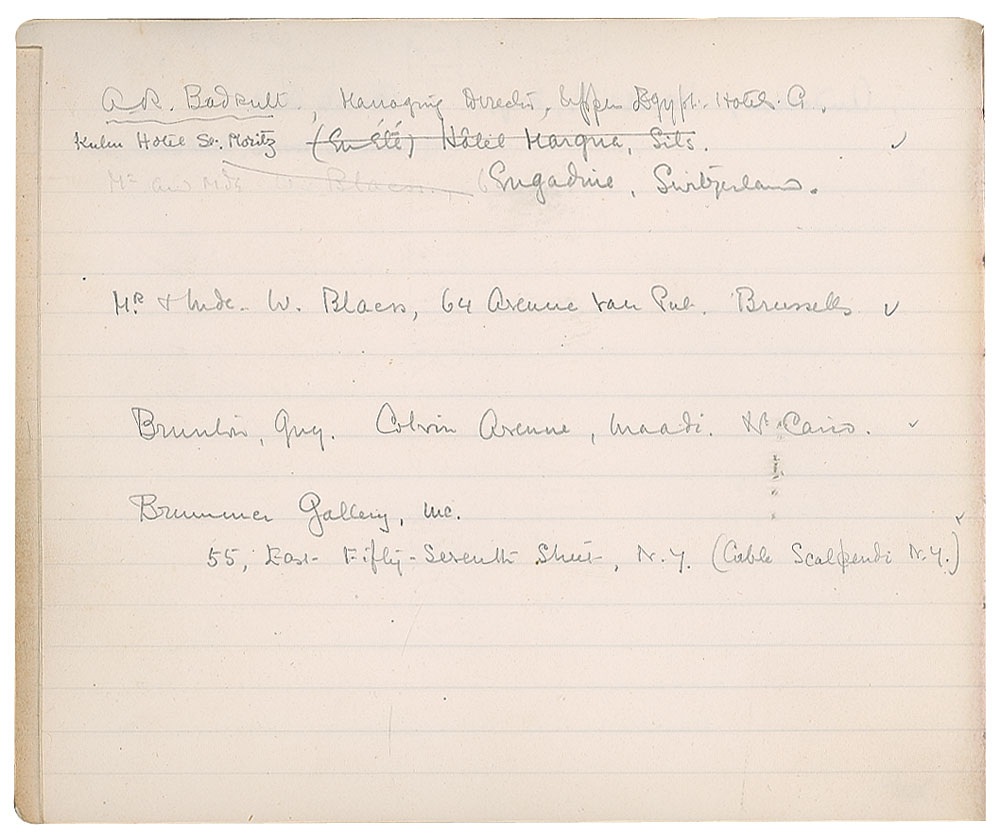 A.R. Badrutt, Managing Director, Upper Egypt. Hotels. C.
Kulm Hotel St. Moritz (En Été) Hôtel Margna, Sils. ✓
Mr and Mde Blaess, Engadine, Switzerland.
Mr. & Mde. W. Blaess, 64 Avenue Brussells ✓
Brunton, Guy. Colvin Avenue, Maadi. Nr. Cairo. ✓
Brummer Gallery, Inc. ✓
55, East Fifty-Seventh Street, N.Y. (Cable Scalpendi N.Y.)